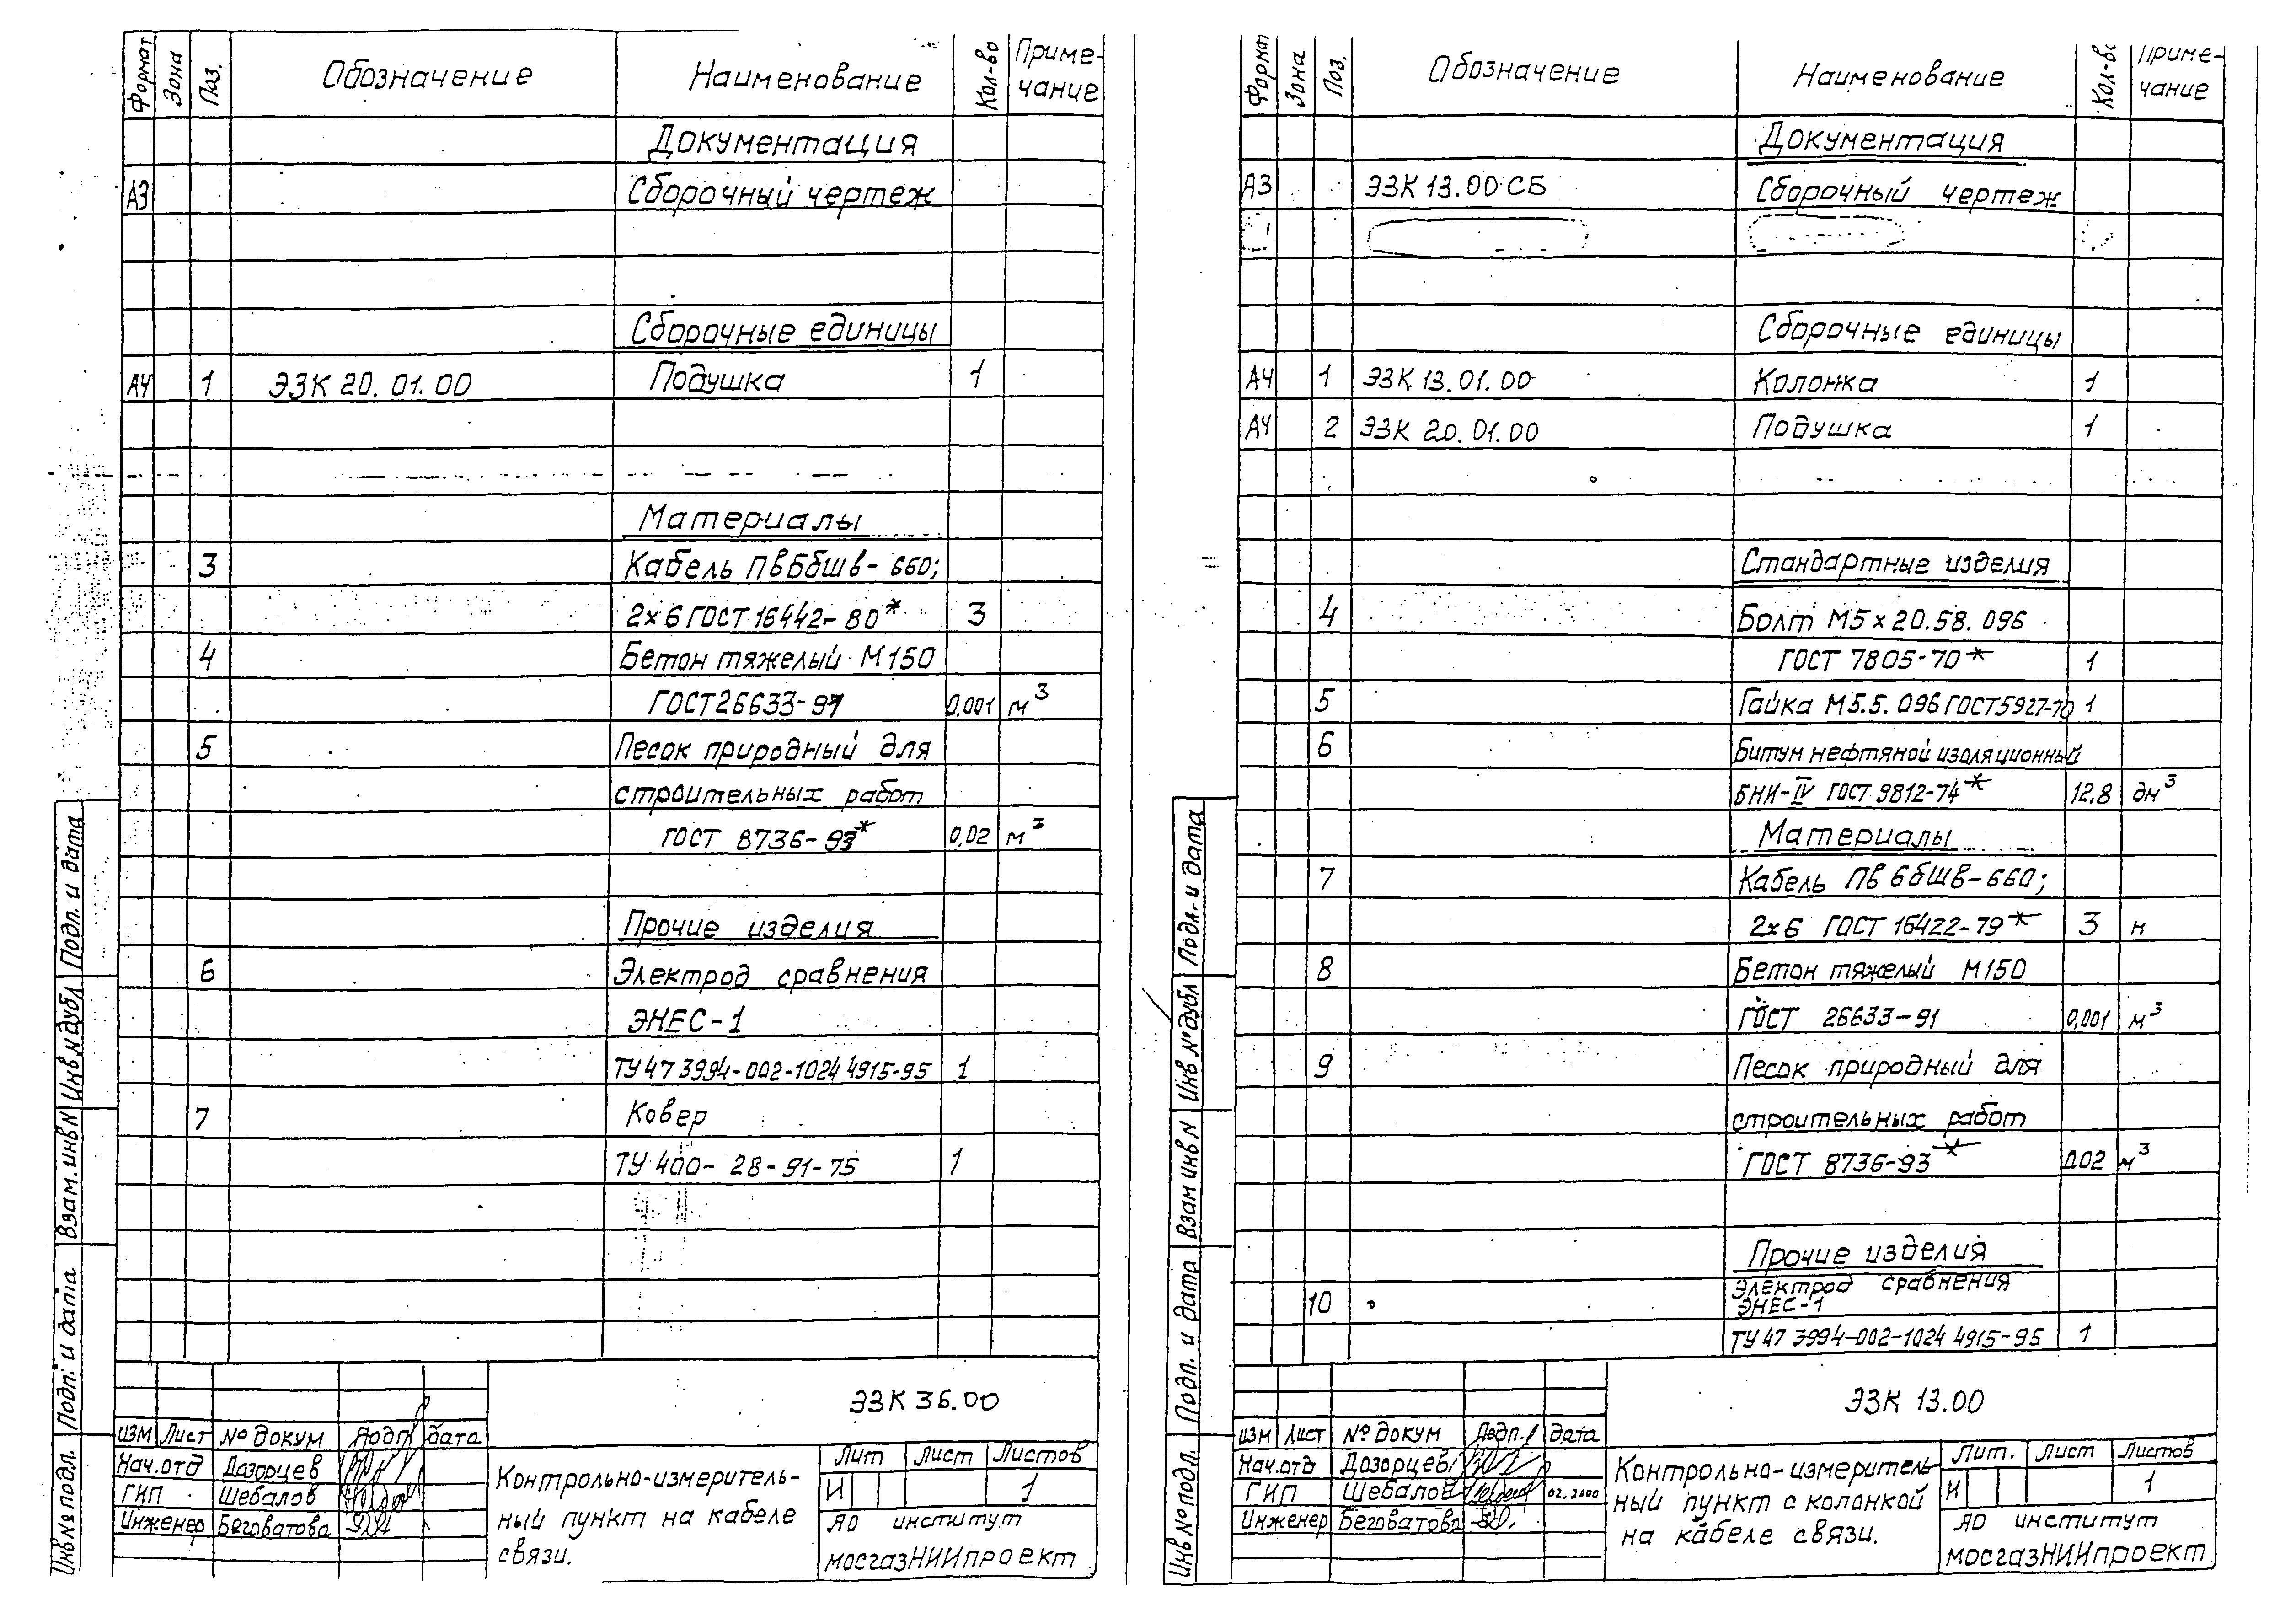 Формат Зона Поз. Обозначение Наименование Кол-во Приме-
чание
Документация
А3 Сборочный чертеж
Сборочные единицы
А4 1 ЭЗК 20.01.00 Подушка 1
Материалы
3 Кабель ПвБбшв-660;
2х6 ГОСТ 16442-80* 3
4 Бетон тяжелый М150
ГОСТ 26633-91 0,001 м³
5 Песок природный для
строительных работ
ГОСТ 8736-93* 0,02 м³
Прочие изделия
6 Электрод сравнения
ЭНЕС-1
ТУ 47 3994-002-1024 4915-95 1
7 Ковер
ТУ 400-28-91-75 1
Инв № подл. Подп. и дата Взам. инв N Инв N дубл Подп. и дата
ЭЗК 36.00
изм Лист № докум Подп дата
Нач.отд Дозорцев
ГИП Шебалов
Инженер Беговатова
Контрольно-измеритель-
ный пункт на кабеле
связи.
Лит Лист Листов
И 1
АО институт
мосгазНИИпроект
Формат Зона Поз. Обозначение Наименование Кол-во Приме-
чание
Документация
А3 ЭЗК 13.00 СБ Сборочный чертеж
Сборочные единицы
А4 1 ЭЗК 13.01.00 Колонка 1
А4 2 ЭЗК 20.01.00 Подушка 1
Стандартные изделия
4 Болт М5х20.58.096
ГОСТ 7805-70* 1
5 Гайка М5.5.096 ГОСТ5927-70 1
6 Битум нефтяной изоляционный
БНИ-IV ГОСТ 9812-74* 12,8 дм³
Материалы
7 Кабель Пв Ббшв-660;
2х6 ГОСТ 16422-79* 3 м
8 Бетон тяжелый М150
ГОСТ 26633-91 0,001 м³
9 Песок природный для
строительных работ
ГОСТ 8736-93* 0,02 м³
Прочие изделия
10 Электрод сравнения
ЭНЕС-1
ТУ 47 3994-002-1024 4915-95 1
Инв № подл. Подп. и дата Взам инв N Инв N дубл Подп. и дата
ЭЗК 13.00
изм Лист № докум Подп. дата
Нач.отд Дозорцев
ГИП Шебалов 02.2000
Инженер Беговатова
Контрольно-измеритель-
ный пункт с колонкой
на кабеле связи.
Лит. Лист Листов
И 1
АО институт
мосгазНИИпроект